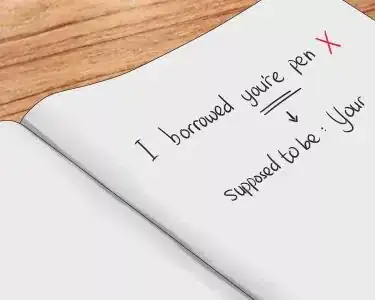 I borrowed you're pen X
supposed to be: Your